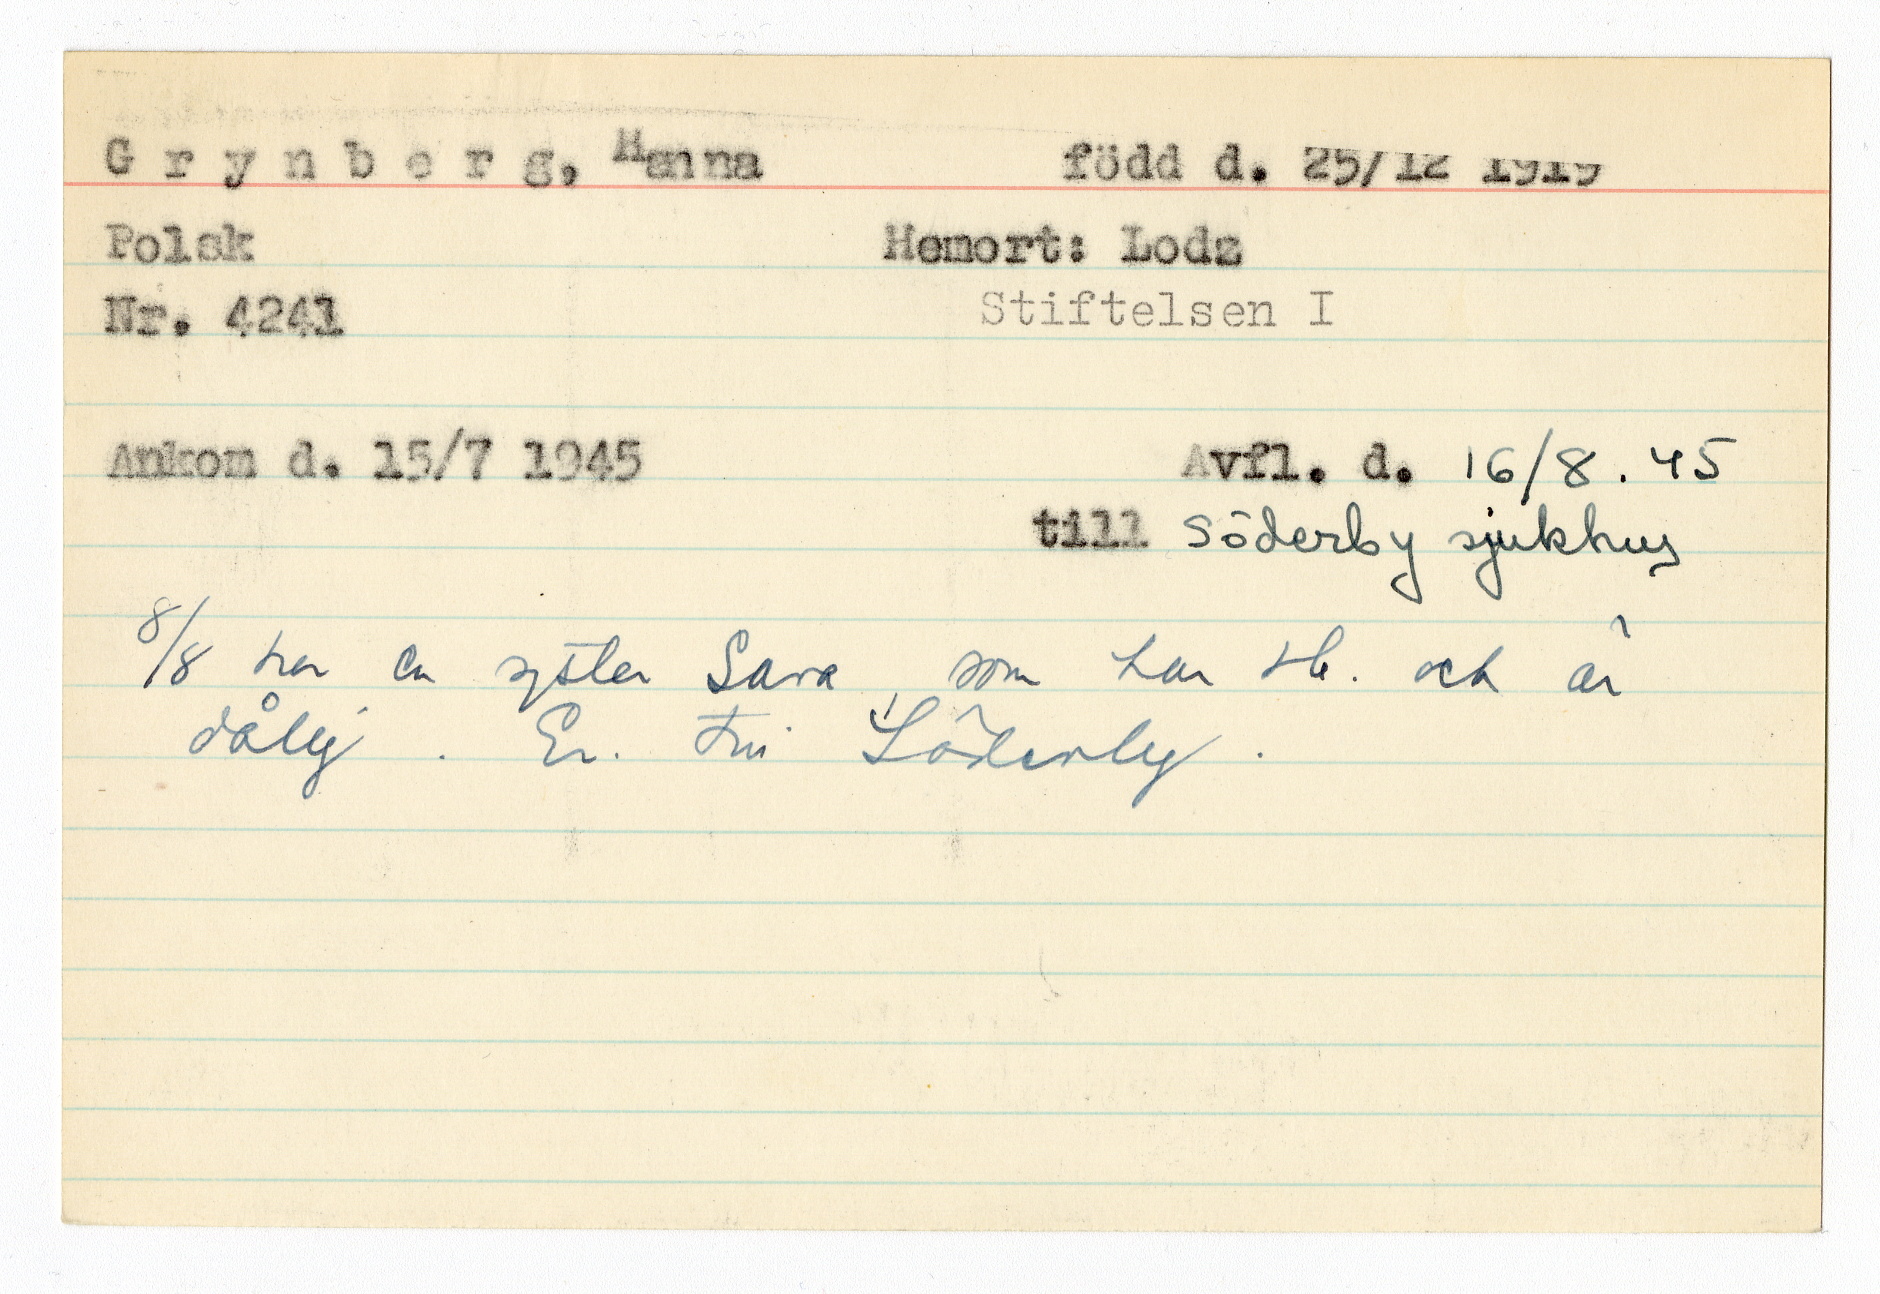 Grynberg, Hanna född d. 25/12 1919
Polsk Hemort: Lodz
Nr. 4241 Stiftelsen I
Ankom d. 15/7 1945 Avfl. d. 16/8.45
till Söderby sjukhus
8/8 har en syster Sara, som har tbc. och är
dålig. Er. till Söderby.